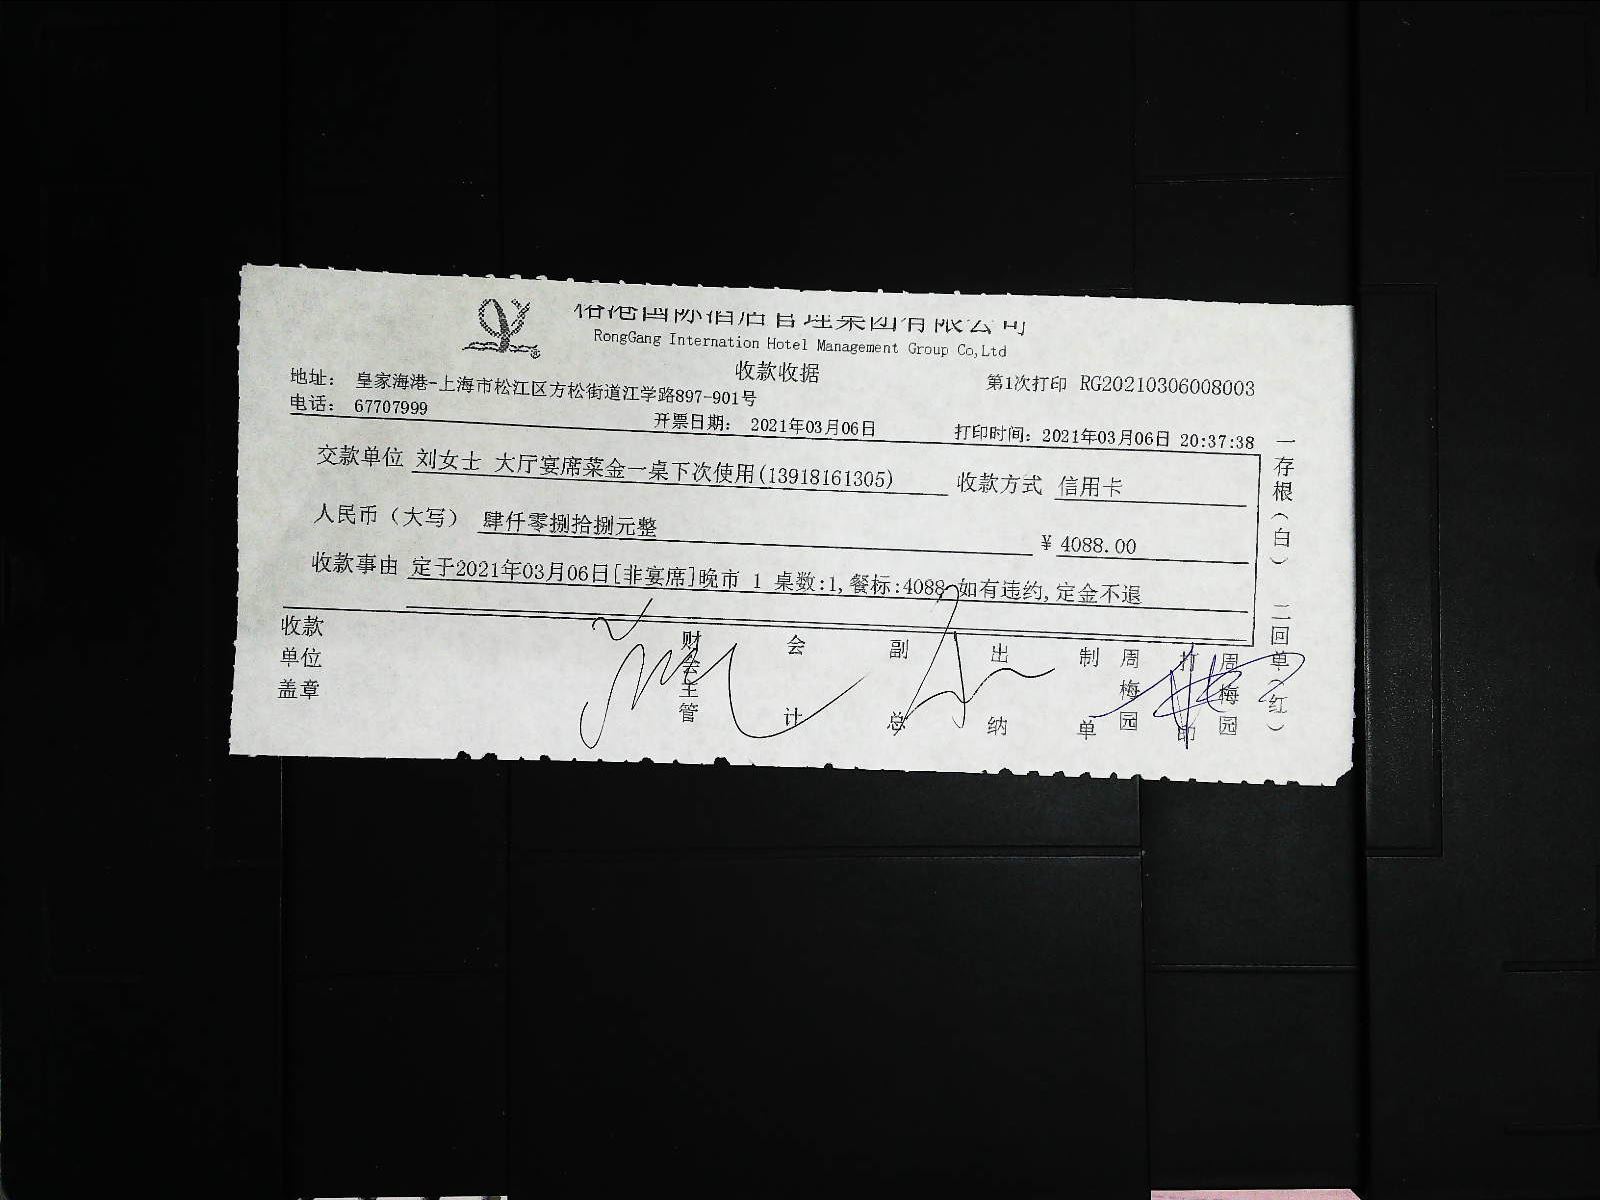 榕港国际酒店管理集团有限公司
RongGang Internation Hotel Management Group Co,Ltd
收款收据
地址： 皇家海港-上海市松江区方松街道江学路897-901号
第1次打印 RG20210306008003
电话： 67707999 开票日期： 2021年03月06日 打印时间：2021年03月06日 20:37:38
交款单位 刘女士 大厅宴席菜金一桌下次使用(13918161305) 收款方式 信用卡
人民币（大写） 肆仟零捌拾捌元整 ¥ 4088.00
收款事由 定于2021年03月06日[非宴席]晚市 1 桌数:1,餐标:4088 如有违约,定金不退
收款单位盖章
财会主管
会计
副总
出纳
制单
周梅园
打印
周梅园
一存根（白） 二回单（红）